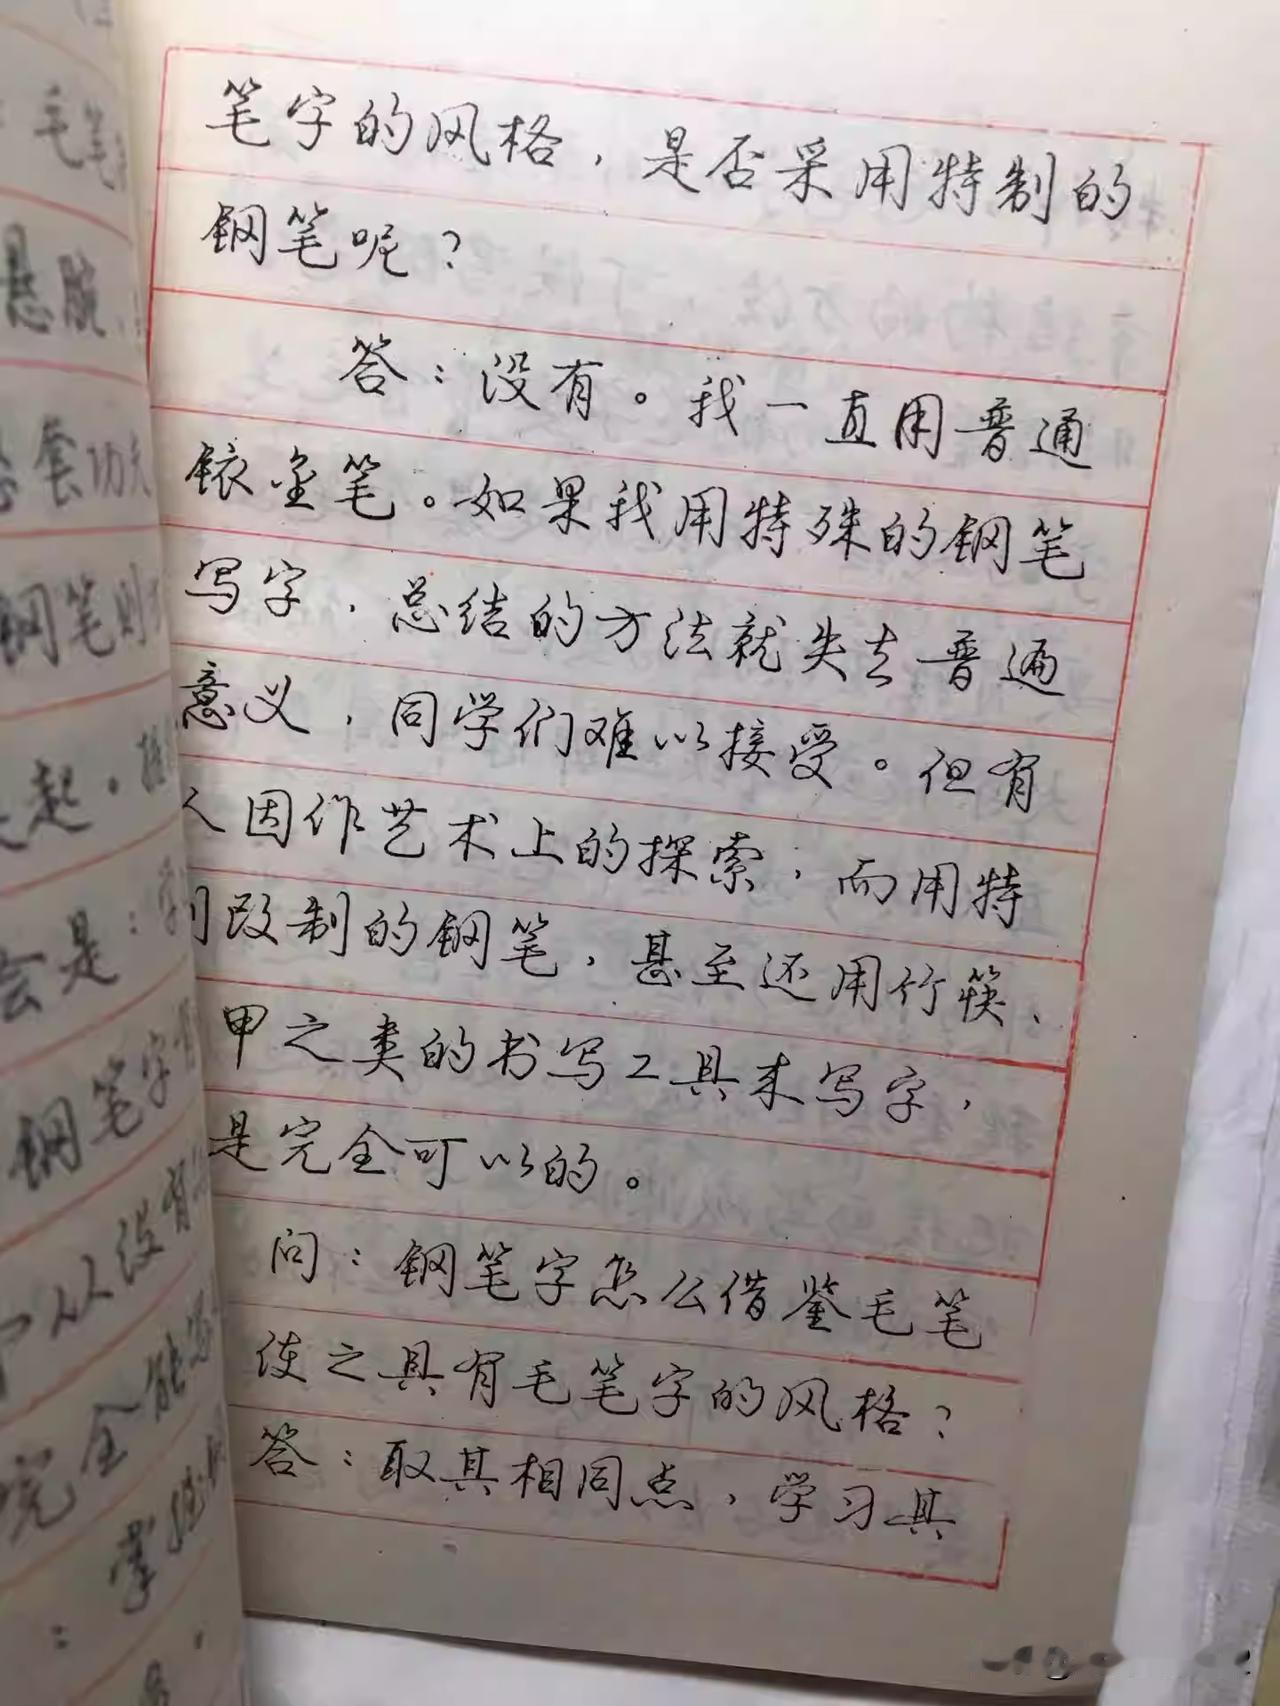 毛笔
悬腕
套功夫
钢笔则
起。
会是：
钢笔字
以没有
完全能写
掌
笔字的风格，是否采用特制的
钢笔呢？
答：没有。我一直用普通
铱金笔。如果我用特殊的钢笔
写字，总结的方法就失去普遍
意义，同学们难以接受。但有
人因作艺术上的探索，而用特
别改制的钢笔，甚至还用竹筷、
甲之类的书写工具来写字，
是完全可以的。
问：钢笔字怎么借鉴毛笔
使之具有毛笔字的风格？
答：取其相同点，学习其